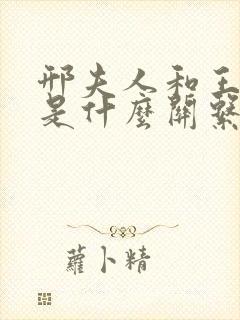 邢夫人和王
是什麼關繫
蘿卜精